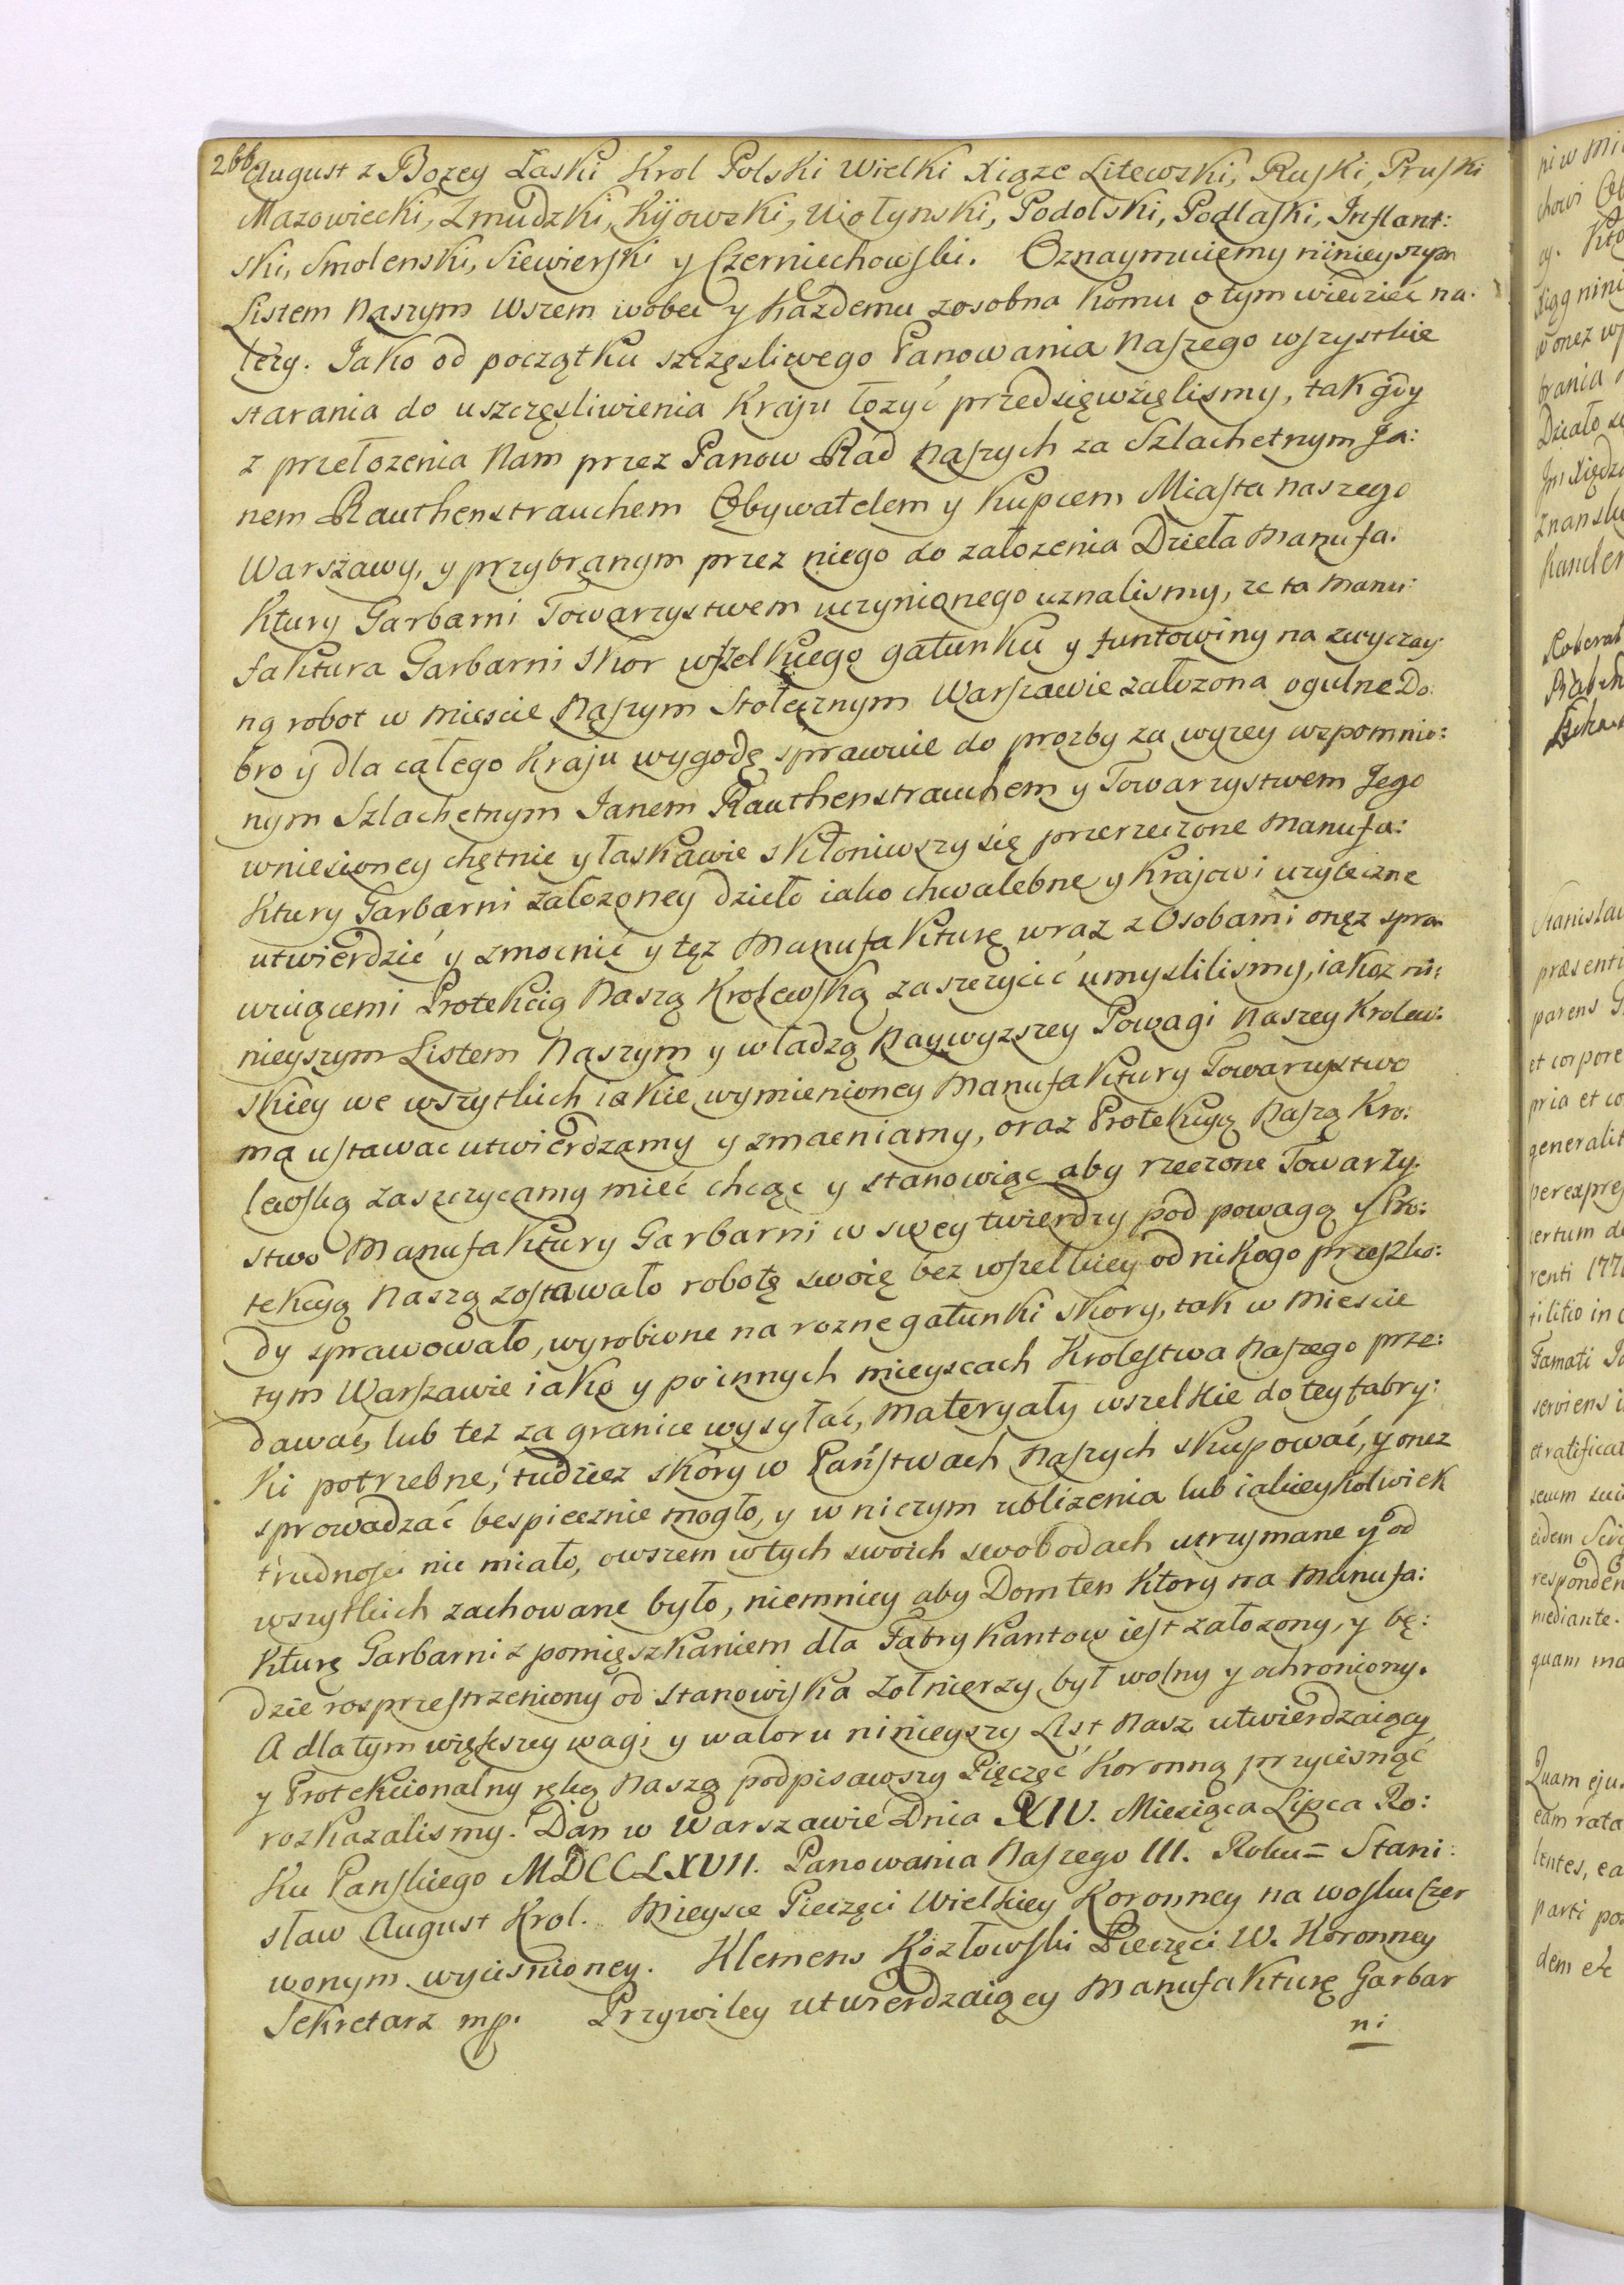 266 August z Bozey Łaski Krol Polski Wielki Xiąze Litewski, Ruski, Pruski
Mazowiecki, Zmudzki, Kijowski, Wołynski, Podolski, Podlaski, Inflant:
ski, Smolenski, Siewierski y Czerniechowski. Oznaymuiemy ninieyszym
Listem Naszym Wszem wobec y każdemu zosobna komu o tym wiedzieć na:
leży. Jako od początku szczęsliwego Panowania Naszego wszystkie
starania do uszczęsliwienia Kraju łożyć przedsięwzięlismy, tak gdy
z przełozenia Nam przez Panow Rad Naszych za Szlachetnym Ja:
nem Rauthenstrauchem Obywatelem y Kupcem Miasta Naszego
Warszawy, y przybranym przez niego do załozenia Dzieła Manufa:
ktury Garbarni Towarzystwem uczynionego uznalismy, ze ta Manu:
faktura Garbarni Skor wszelkiego gatunku y funtowiny na zwyczay
ną robot w Miescie Naszym Stołecznym Warszawie załozona ogulne Do:
bro y dla całego Kraju wygodę sprawuie do prozby za wyzey wspomnio:
nym Szlachetnym Janem Rauthenstrauchem y Towarzystwem Jego
wniesioney chętnie y łaskawie skłoniwszy się przerzeczone Manufa:
ktury Garbarni załozoney dzieło iako chwalebne y Krajowi uzyteczne
utwierdzić y zmocnić y tęz Manufakturę wraz z Osobami onęz spra:
wuiącemi Protekcią Naszą Krolewską zaszczycić umyslilismy, iakoz ni:
nieyszym Listem Naszym y władzą Naywyzszey Powagi Naszey Krolew:
skiey we wszytkich iakie wymienioney Manufaktury Towarzystwo
ma ustawac utwierdzamy y zmacniamy, oraz Protekcyą Naszą Kro:
lewską zaszczycamy mieć chcąc y stanowiąc aby rzeczone Towarzy:
stwo Manufaktury Garbarni w swey twierdzy pod powagą y Pro:
tekcyą Naszą zostawało robotę swoię bez wszelkiey od nikogo przeszko:
dy sprawowało, wyrobione na rozne gatunki skory, tak w Miescie
tym Warszawie iako y po innych mieyscach Krolestwa Naszego prze:
dawać, lub tez za granice wysyłać, materyały wszelkie do tey fabry:
ki potrzebne, tudziez skory w Państwach Naszych skupować, y onez
sprowadzać bespiecznie mogło, y w niczym ubliżenia lub iakieykolwiek
trudności nie miało, owszem w tych swoich swobodach utrzymane y od
wszytkich zachowane było, niemniey aby Dom ten ktory na Manufa:
kturę Garbarni z pomięszkaniem dla Fabrykantow iest załozony, y bę:
dzie rosprzestrzeniony od stanowiska Zołnierzy był wolny y ochroniony.
A dla tym większey wagi y waloru ninieyszy List Nasz utwierdzaiący
y Protekcionalny ręką Naszą podpisawszy Pięczęć Koronną przycisnąć
rozkazalismy. Dan w Warszawie Dnia XIV. Miesiąca Lipca Ro:
ku Panskiego MDCCLXVII. Panowania Naszego III. Roku= Stani:
sław August Krol. Mieysce Pieczęci Wielkiey Koronney na wosku czer
wonym wycisnioney. Klemens Kozłowski Pieczęci W. Koronney
Sekretarz mp. Przywiley utwierdzaiący Manufakturę Garbar
ni